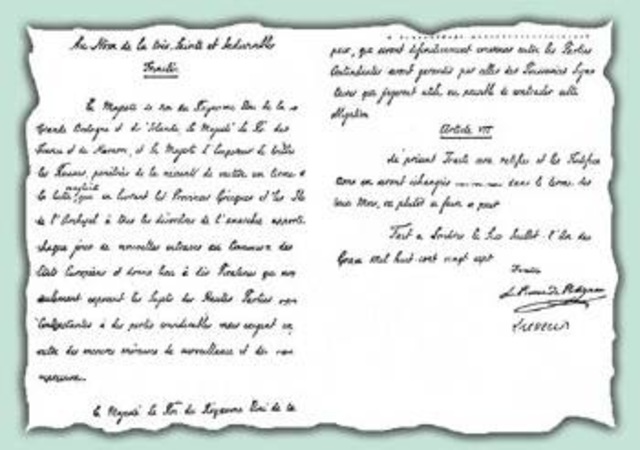 Au Nom de la très Sainte et Indivisible
Traité
Sa Majesté le roi du Royaume Uni de la
Grande Bretagne et d'Irlande, Sa Majesté le Roi de
France et de Navarre, et Sa Majesté l'Empereur de toutes
les Russies, pénétrées de la nécessité de mettre un terme à
la lutte sanglante qui en livrant les Provinces Grecques et les Iles
de l'Archipel à tous les désordres de l'anarchie apporte
chaque jour de nouvelles entraves au Commerce des
Etats Européens et donne lieu à des Pirateries qui non
seulement exposent les Sujets des Hautes Parties
Contractantes à des pertes considérables mais exigent en
outre des mesures onéreuses de surveillance et de
Sa Majesté le Roi du Royaume Uni de la
paix, qui seront définitivement convenus entre les Parties
Contendantes seront garantis par celles des Puissances Signa
taires qui jugeront utile, ou possible de contracter cette
obligation
Article VII
Le présent Traité sera ratifié et les Ratifica
tions en seront échangées dans le terme de
deux Mois, ou plutôt si faire se peut
Fait à Londres le Six Juillet l'An de
Grace Mil huit cent vingt sept
Le Prince de Polignac
Lieven